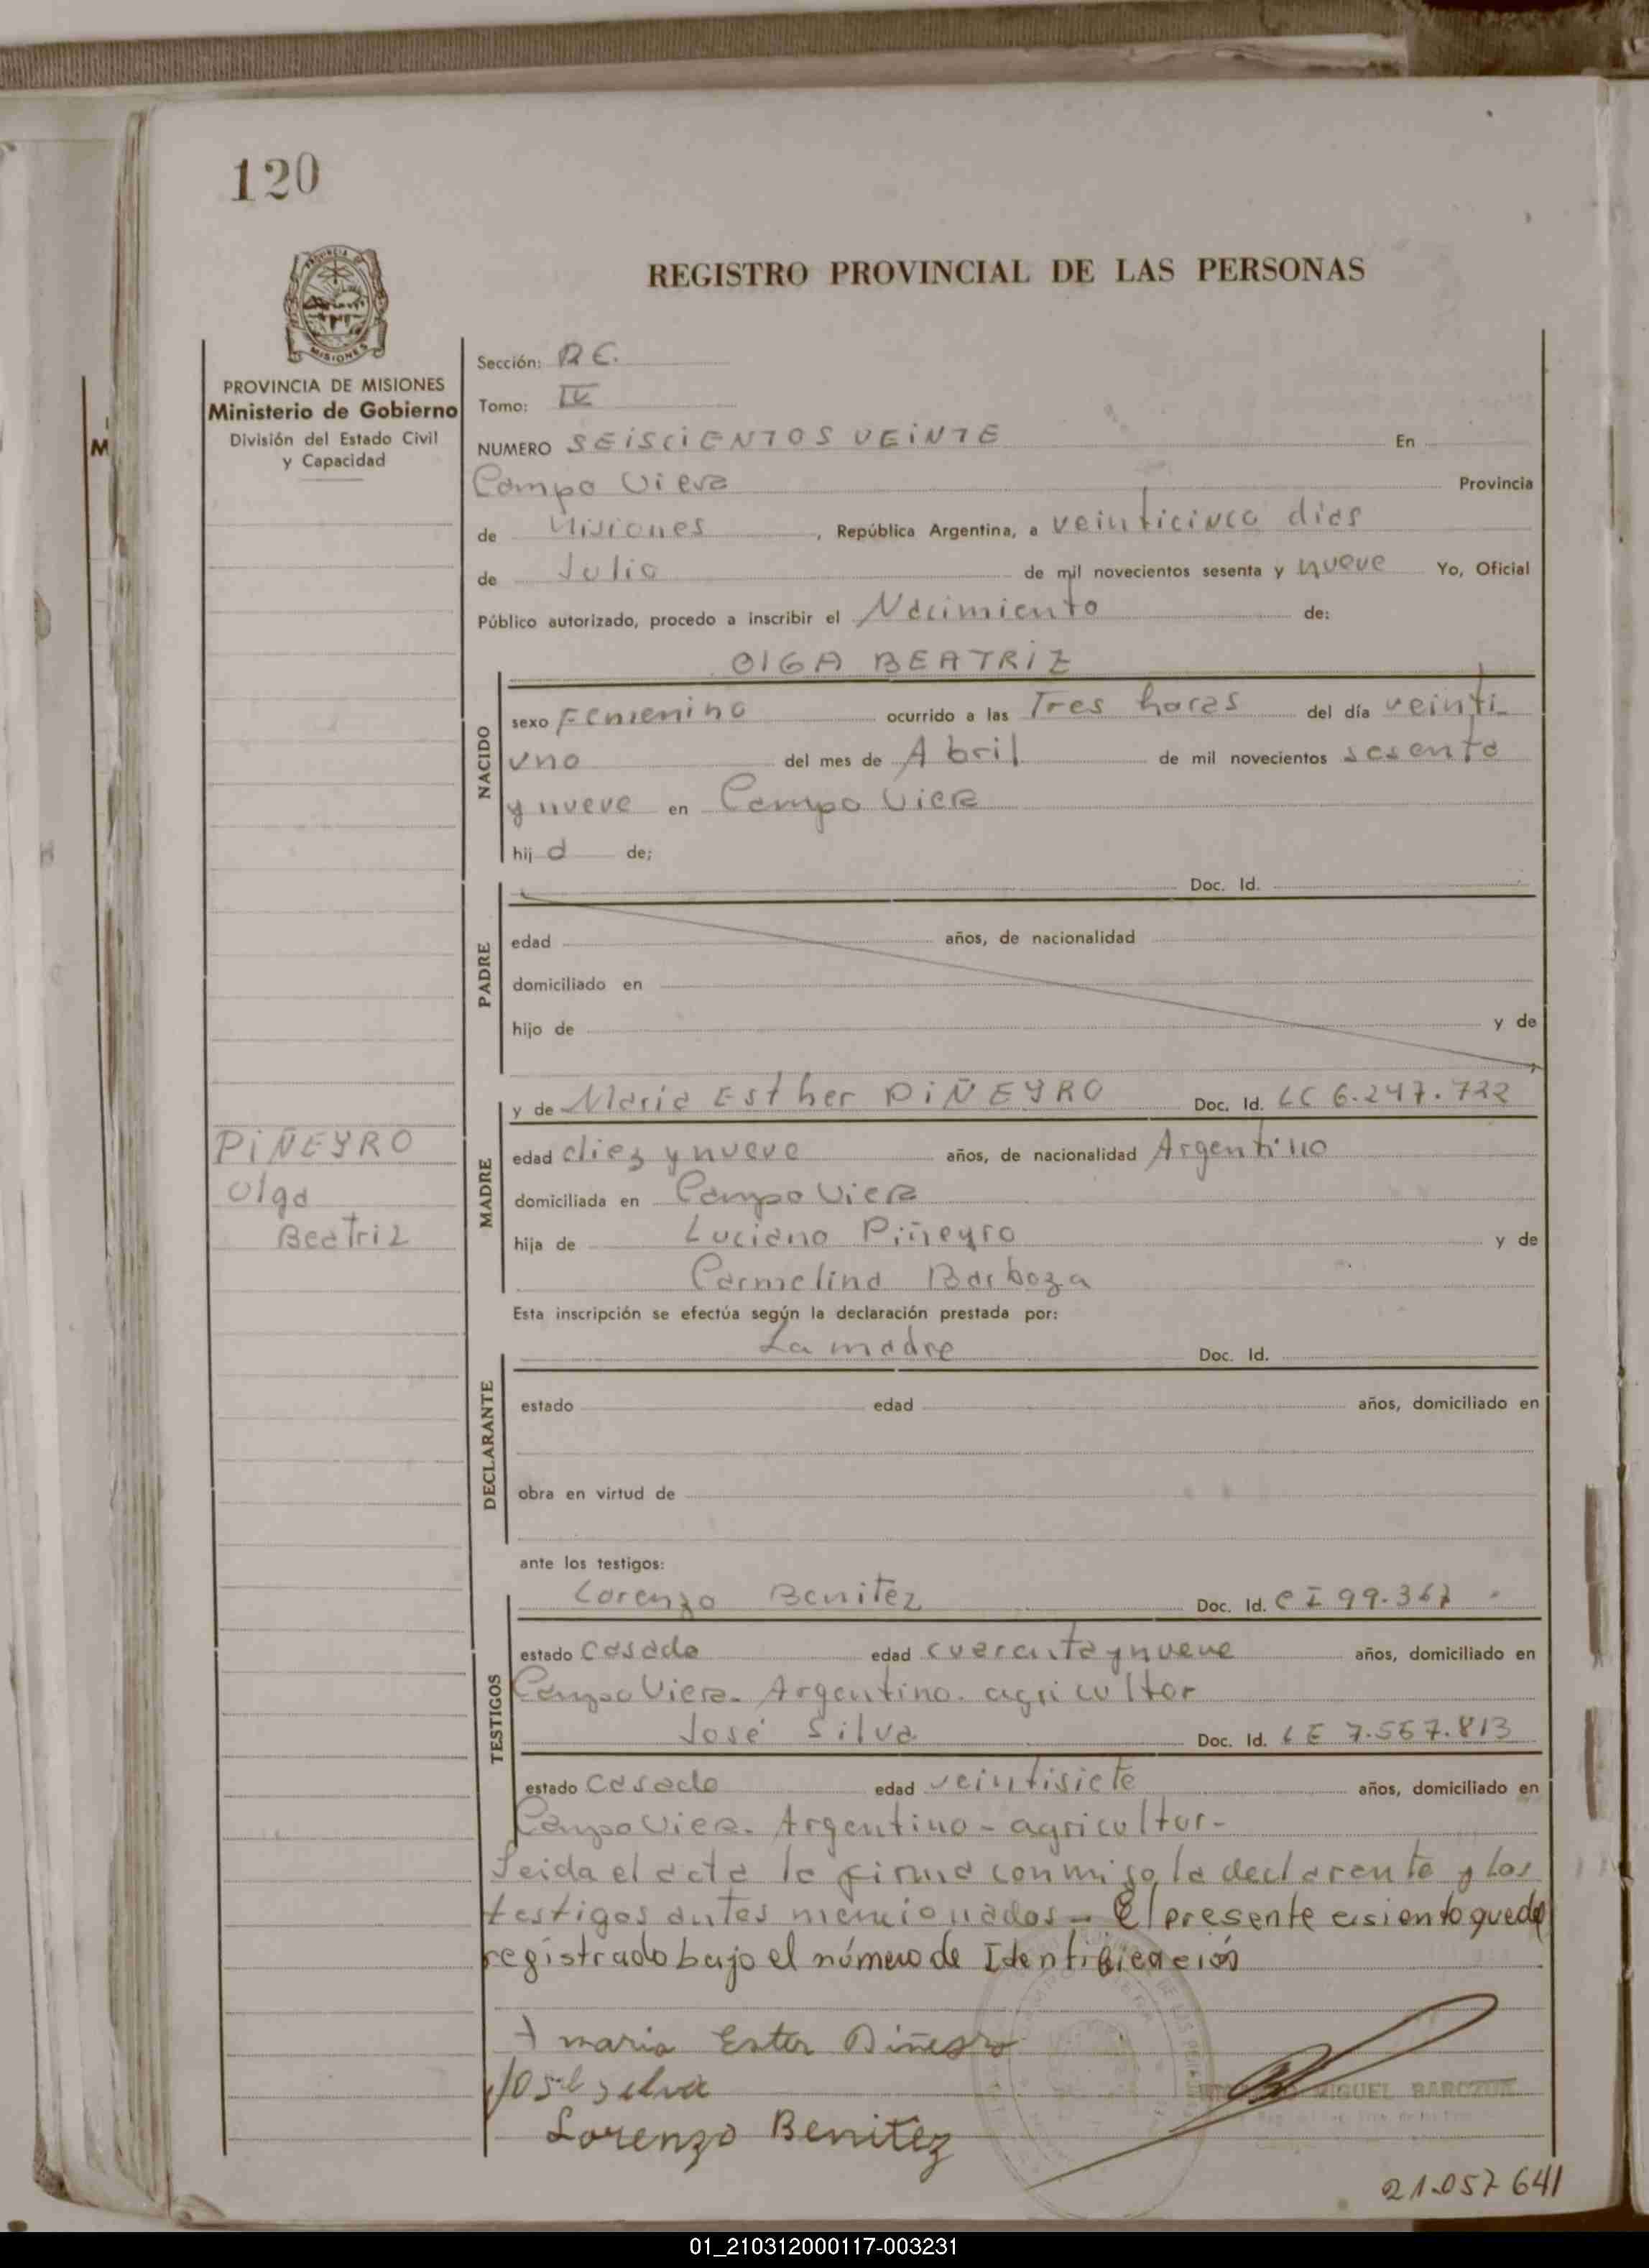 120
PROVINCIA DE
MISIONES
REGISTRO PROVINCIAL DE LAS PERSONAS
PROVINCIA DE MISIONES
Ministerio de Gobierno
División del Estado Civil
y Capacidad
M
Sección:
Tomo: IV
NUMERO SEISCIENTOS VEINTE En
Campo Viera Provincia
de Misiones, República Argentina, a veinticinco dias
de Julio de mil novecientos sesenta y nueve Yo, Oficial
Público autorizado, procedo a inscribir el Nacimiento de:
OLGA BEATRIZ
NACIDO
sexo Femenino ocurrido a las Tres horas del día veinti-
uno del mes de Abril de mil novecientos sesenta
y nueve en Campo Viera
hij a de;
PADRE
Doc. Id.
edad años, de nacionalidad
domiciliado en
hijo de y de
MADRE
y de Maria Esther PIÑEYRO Doc. Id. LC 6.247.722
edad diez y nueve años, de nacionalidad Argentino
domiciliada en Campo Viera
hija de Luciano Piñeyro y de
Carmelina Barboza
PIÑEYRO
Olga
Beatriz
Esta inscripción se efectúa según la declaración prestada por:
DECLARANTE
La madre Doc. Id.
estado edad años, domiciliado en
obra en virtud de
ante los testigos:
TESTIGOS
Lorenzo Benitez Doc. Id. CI 99.367
estado casado edad cuarenta y nueve años, domiciliado en
Campo Viera. Argentino. agricultor
José Silva Doc. Id. LE 7.557.813
estado casado edad veintisiete años, domiciliado en
Campo Viera. Argentino - agricultor-
Leida el acta la firma conmigo, la declarante y los
testigos antes mencionados - El presente asiento queda
registrado bajo el número de Identificación
maria Ester Piñeyro
José silva
Lorenzo Benitez
MIGUEL BARCZUK
21.057641
01_210312000117-003231